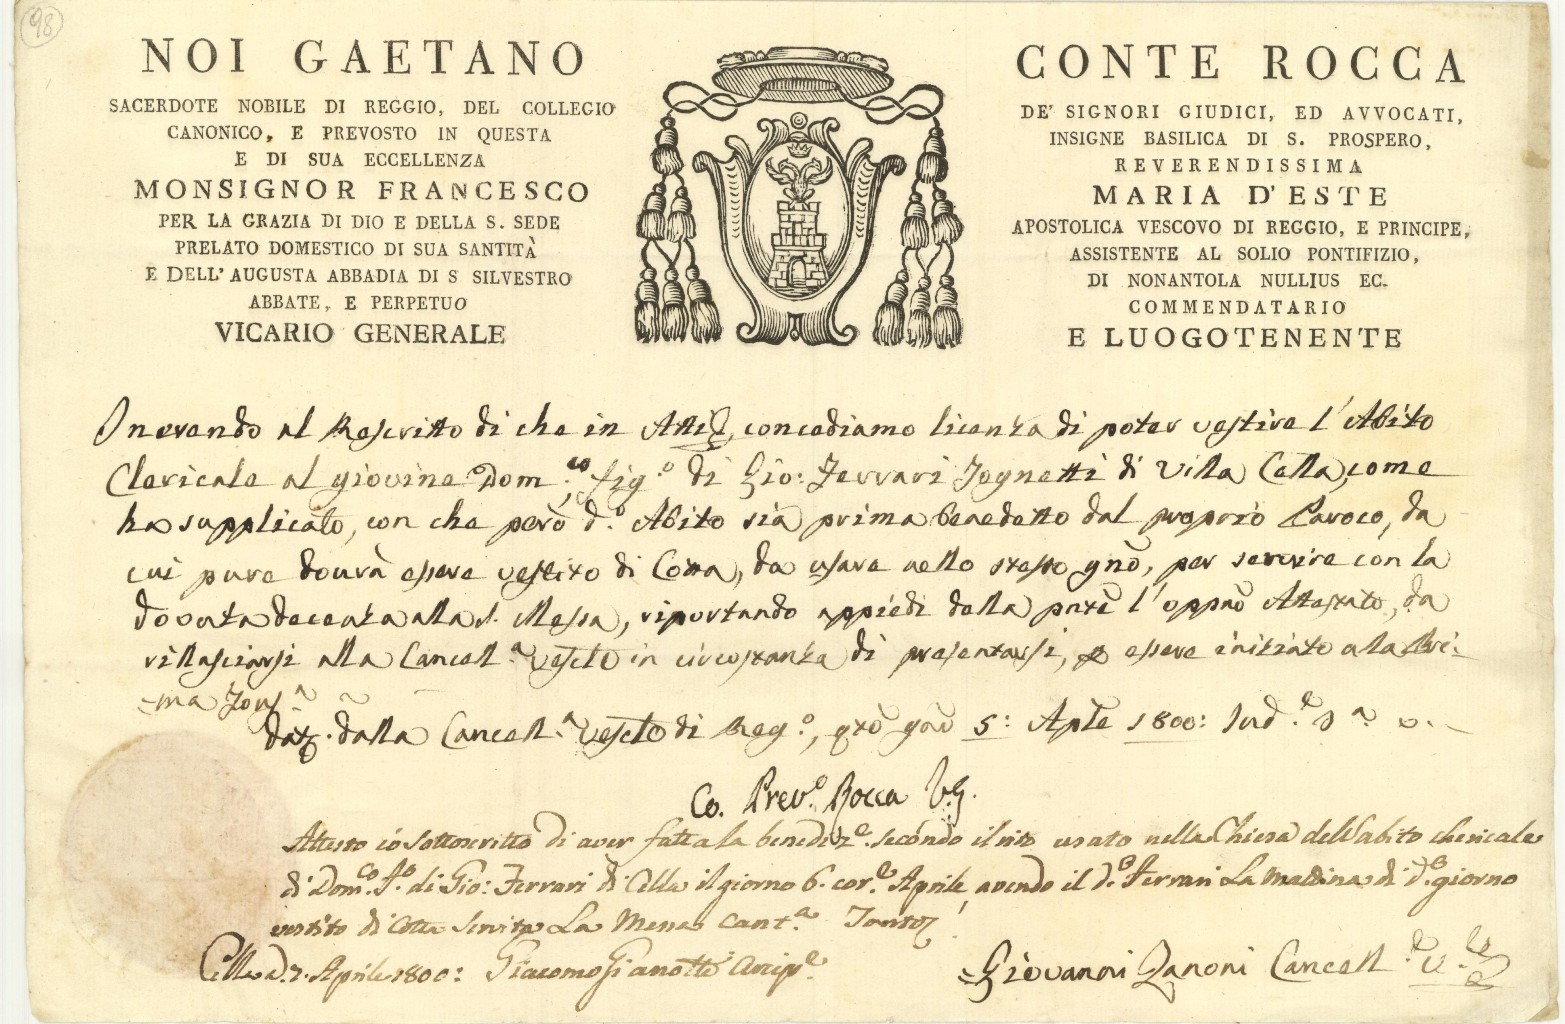 98
NOI GAETANO CONTE ROCCA
SACERDOTE NOBILE DI REGGIO, DEL COLLEGIO DE' SIGNORI GIUDICI, ED AVVOCATI,
CANONICO, E PREVOSTO IN QUESTA INSIGNE BASILICA DI S. PROSPERO,
E DI SUA ECCELLENZA REVERENDISSIMA
MONSIGNOR FRANCESCO MARIA D'ESTE
PER LA GRAZIA DI DIO E DELLA S. SEDE APOSTOLICA VESCOVO DI REGGIO, E PRINCIPE,
PRELATO DOMESTICO DI SUA SANTITÀ ASSISTENTE AL SOLIO PONTIFIZIO,
E DELL' AUGUSTA ABBADIA DI S SILVESTRO DI NONANTOLA NULLIUS EC.
ABBATE, E PERPETUO COMMENDATARIO
VICARIO GENERALE E LUOGOTENENTE
Inerendo al Rescritto di che in Atti, concediamo licenza di poter vestire l'Abito
Clericale al giovine Dom.co fig.o di Gio: Ferrari Tognetti di Villa Cella, come
ha supplicato, con che però d.o Abito sia prima benedetto dal proprio Paroco, da
cui pure dovrà essere vestito di Cotta, da usare nello stesso gnõ, per servire con la
dovuta decenza alla S. Messa, riportando appiedi della pntẽ l'oppnõ Attestato, da
rillasciarsi alla Cancell.a Vesclẽ in circostanza di presentarsi, p essere iniziato alla Pri:
-ma Tons.a
Dat. dalla Cancell.a di Reg.o, 5: Aplẽ 1800: Ind.e 3.a
Co. Prev.o Rocca V.G.
Attesto io sottoscritto di aver fatta la benediz.e secondo il rito usato nella Chiesa dell'abito chericale
di Dom.co F.o di Gio: Ferrari di Cella il giorno 6. cor.e Aprile, avendo il d.o Ferrari La mattina di d.o giorno
vestito di Cotta Servita La Messa Cant.a
Cella d. 7. Aprile 1800: Giacomo Gianotti Arcip.e
Giovanni Zanoni Cancell.e V.le